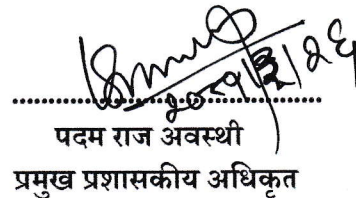 २०८१।३।२६
पदम राज अवस्थी
प्रमुख प्रशासकीय अधिकृत